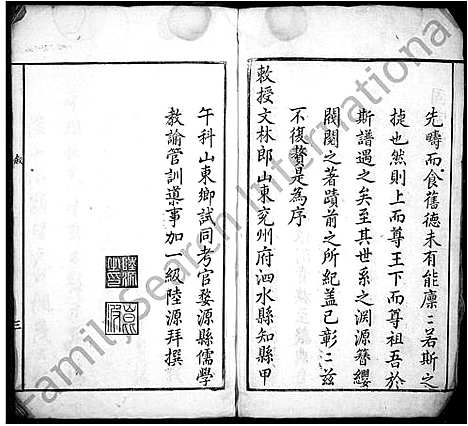 先疇而食舊德未有能廩〻若斯之
捷也然則上而尊王下而尊祖吾於
斯譜遇之矣至其世系之淵源簪纓
閥閱之著蹟前之所紀盖已彰〻兹
不復贅是為序
敕授文林郎山東兖州府泗水縣知縣甲
午科山東鄉試同考官婺源縣儒學
教諭管訓導事加一級陸源拜撰
三
FamilySearch International